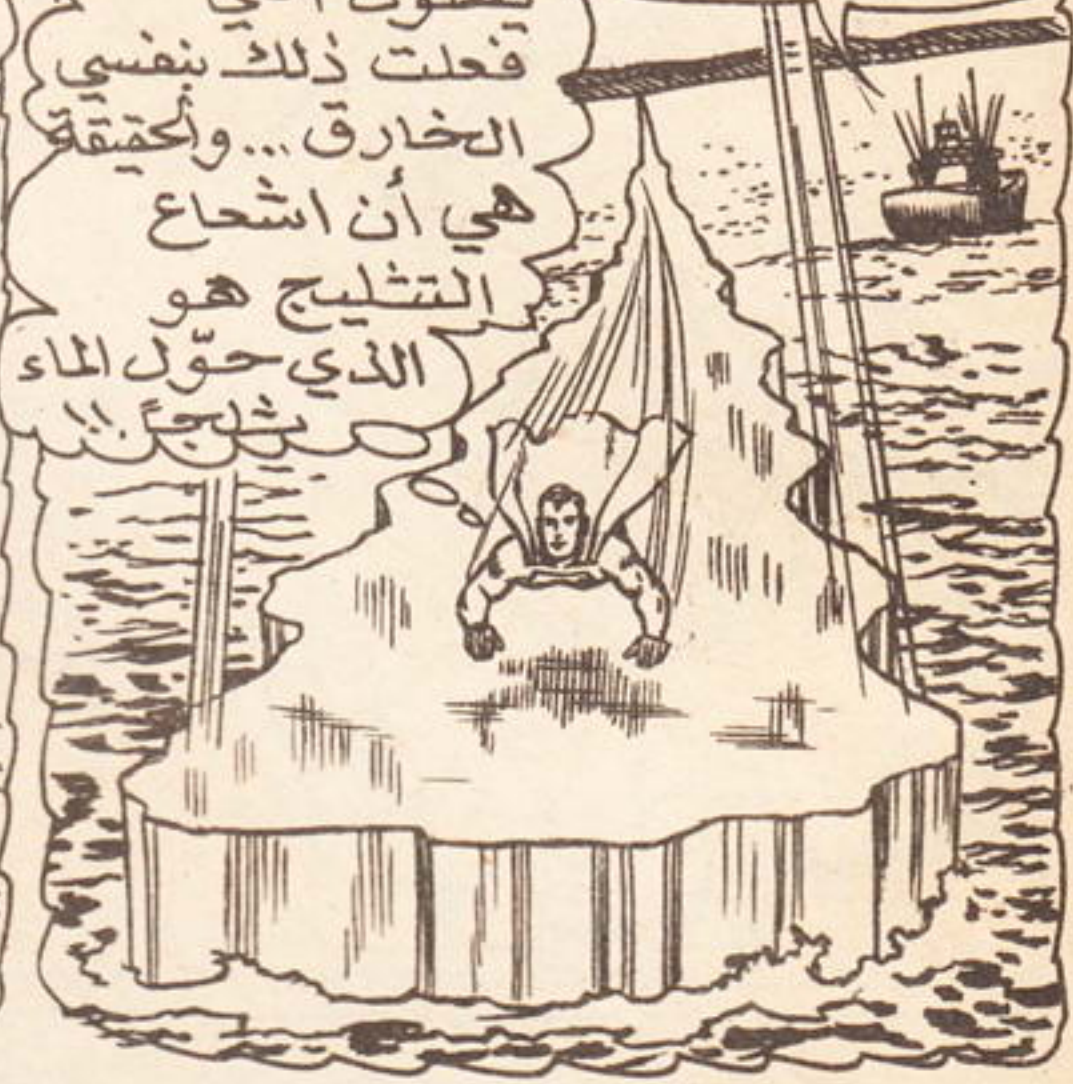 فعلت ذلك بنفسي
الخارق ... والحقيقة
هي أن اشعاع
التثليج هو
الذي حوّل الماء
ثلجـًا !!